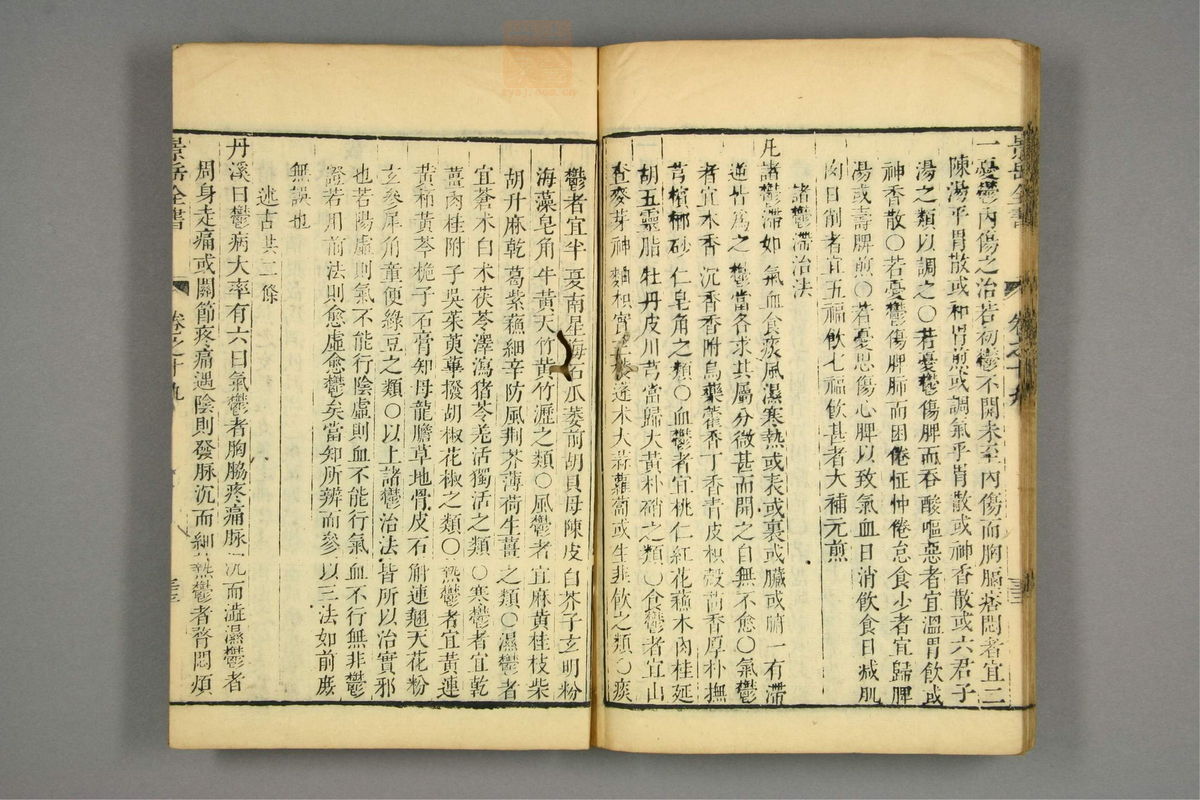 景岳全書
卷之十九
一憂鬱內傷之治若初鬱不開未至內傷而胸膈痞悶者宜二
陳湯平胃散或和胃煎或調氣平胃散或神香散或六君子
湯之類以調之○若憂鬱傷脾而吞酸嘔惡者宜溫胃飲或
神香散○若憂鬱傷脾肺而困倦怔忡倦怠食少者宜歸脾
湯或壽脾煎○若憂思傷心脾以致氣血日消飲食日減肌
肉日削者宜五福飲七福飲甚者大補元煎
諸鬱滯治法
凡諸鬱滯如氣血食痰風濕寒熱或表或裏或臟或腑一有滯
逆皆爲之鬱當各求其屬分微甚而開之自無不愈○氣鬱
者宜木香沉香香附烏藥藿香丁香青皮枳殼茴香厚朴撫
芎檳榔砂仁皂角之類○血鬱者宜桃仁紅花蘇木肉桂延
胡五靈脂牡丹皮川芎當歸大黃朴硝之類○食鬱者宜山
查麥芽神麯枳實三稜蓬朮大蒜蘿蔔或生韭飲之類○痰
鬱者宜半夏南星海石瓜蔞前胡貝母陳皮白芥子玄明粉
海藻皂角牛黃天竹黃竹瀝之類○風鬱者宜麻黃桂枝柴
胡升麻乾葛紫蘇細辛防風荆芥薄荷生薑之類○濕鬱者
宜蒼朮白朮茯苓澤瀉猪苓羌活獨活之類○寒鬱者宜乾
薑肉桂附子吳茱萸蓽撥胡椒花椒之類○熱鬱者宜黃連
黃柏黃芩梔子石膏知母龍膽草地骨皮石斛連翹天花粉
玄參犀角童便綠豆之類○以上諸鬱治法皆所以治實邪
也若陽虛則氣不能行陰虛則血不能行氣血不行無非鬱
證若用前法則愈虛愈鬱矣當知所辨而參以三法如前庶
無誤也
述古共二條
丹溪曰鬱病大率有六曰氣鬱者胸脇疼痛脉沉而濇濕鬱者
周身走痛或關節疼痛遇陰則發脉沉而細熱鬱者瞀悶煩
景岳全書
卷之十九
三三